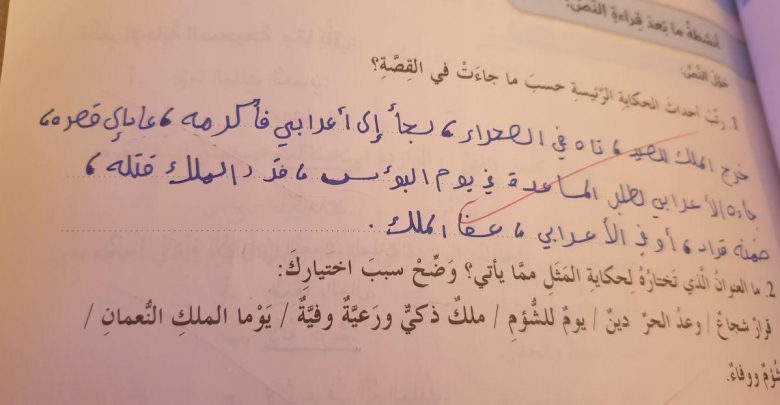 أنشطةُ ما بَعدَ قِراءةِ النَّصِّ:
حَوْلَ النَّصِّ:
1. رتّبْ أحداثَ الحكايةِ الرَّئيسيةِ حسبَ ما جاءَتْ في القِصَّةِ؟
خرج الملك للصيد، تاه في الصحراء، لجأ إلى أعرابي فأكرمه، عاد إلى قصره،
جاءه الأعرابي لطلب المساعدة في يوم البؤس، قرر الملك قتله،
ضمنه قراد، أوفى الأعرابي، عفا الملك.
2. ما العنوانُ الّذي تَختارُهُ لِحكايةِ المَثَلِ ممّا يأتي؟ وَضِّحْ سببَ اختيارِكَ:
قرارٌ شجاعٌ / وعدُ الحرِّ دينٌ / يومٌ للشُّؤمِ / ملكٌ ذكيٌّ ورَعِيَّةٌ وفيَّةٌ / يَوْما الملكِ النُّعمانِ /
شُؤمٌ ووفاءٌ.